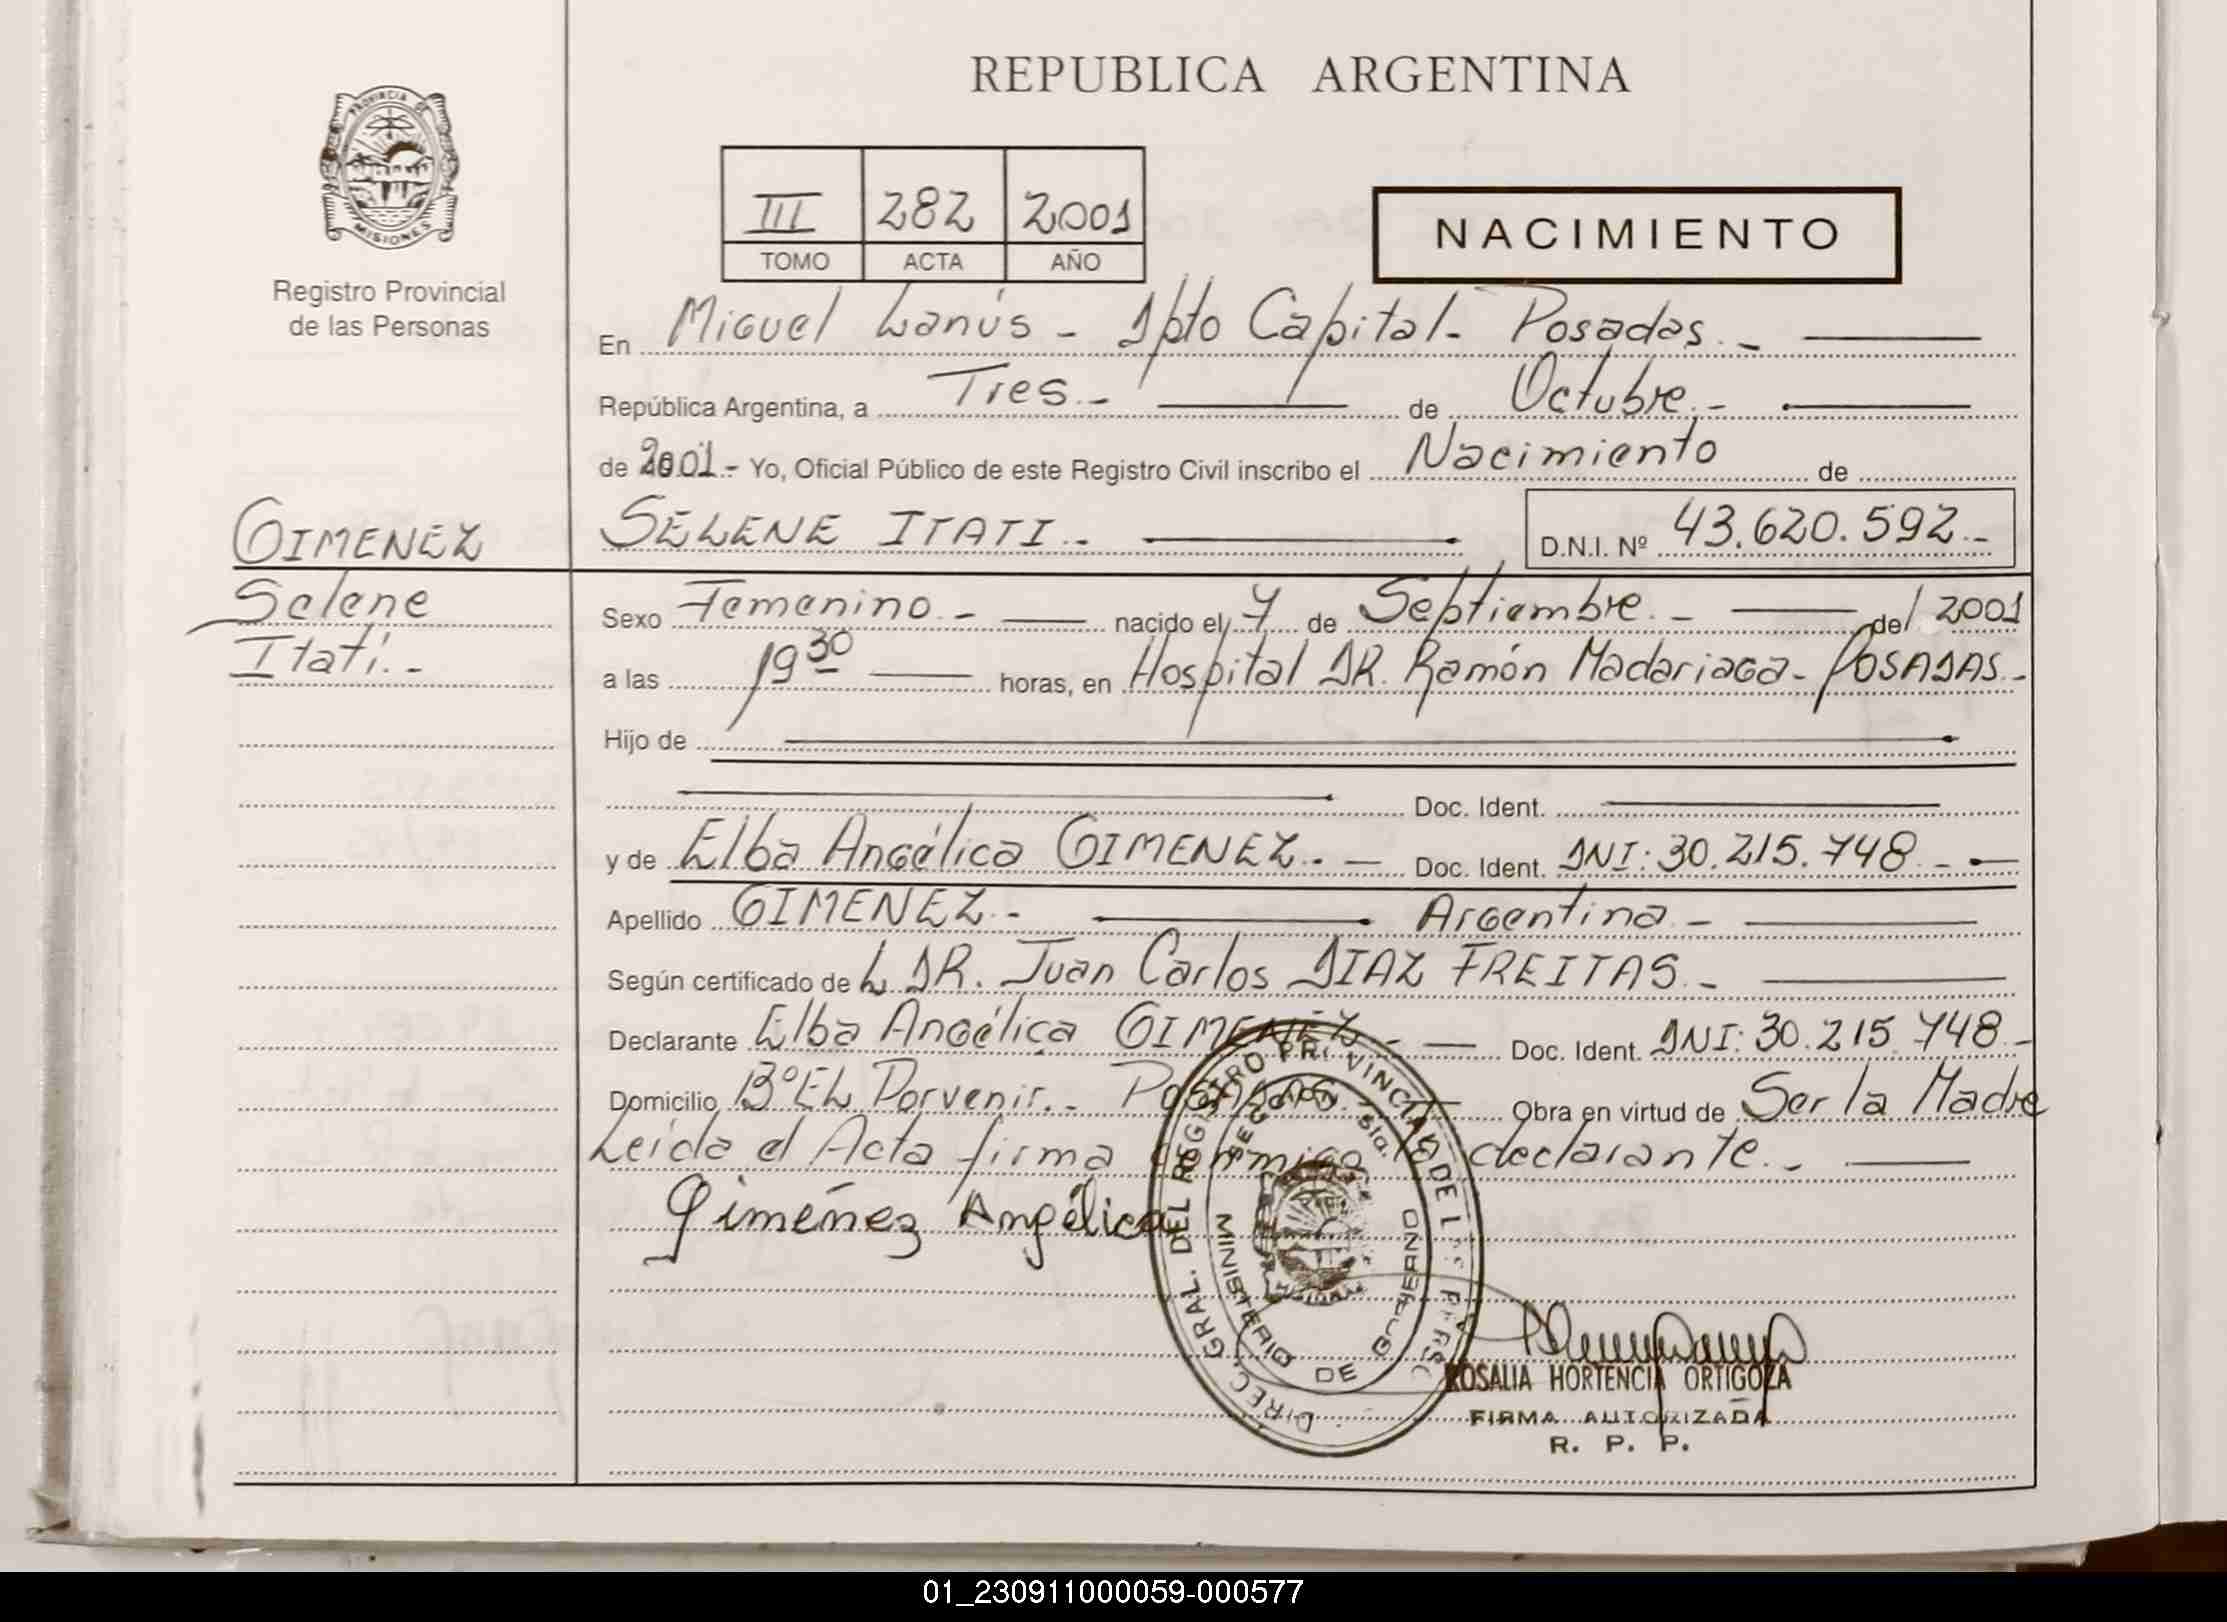 REPUBLICA ARGENTINA
PROVINCIA DE
MISIONES
Registro Provincial
de las Personas
III 282 2001
TOMO ACTA AÑO
NACIMIENTO
En Miguel Lanús - Dpto Capital - Posadas. -
República Argentina, a Tres. - de Octubre. -
de 2001. - Yo, Oficial Público de este Registro Civil inscribo el Nacimiento de
GIMENEZ
Selene
Itatí. -
SELENE ITATI. - D.N.I. Nº 43.620.592. -
Sexo Femenino. - nacido el 7 de Septiembre. - del 2001
a las 19 30 horas, en Hospital DR. Ramón Madariaga - POSADAS. -
Hijo de
Doc. Ident.
y de Elba Angélica GIMENEZ. - Doc. Ident. DNI: 30.215.748. -
Apellido GIMENEZ. - Argentina. -
Según certificado de L DR. Juan Carlos DIAZ FREITAS. -
Declarante Elba Angélica GIMENEZ - Doc. Ident. DNI: 30.215.748. -
Domicilio Bº EL Porvenir. - Posadas. - Obra en virtud de Ser la Madre
Leída el Acta firma conmigo la declarante. -
Giménez Angélica
DIREC. GRAL. DEL REGISTRO PROVINCIAL DE LAS PERS
MINISTERIO DE GOBIERNO
ROSALIA HORTENCIA ORTIGOZA
FIRMA AUTORIZADA
R. P. P.
01_230911000059-000577